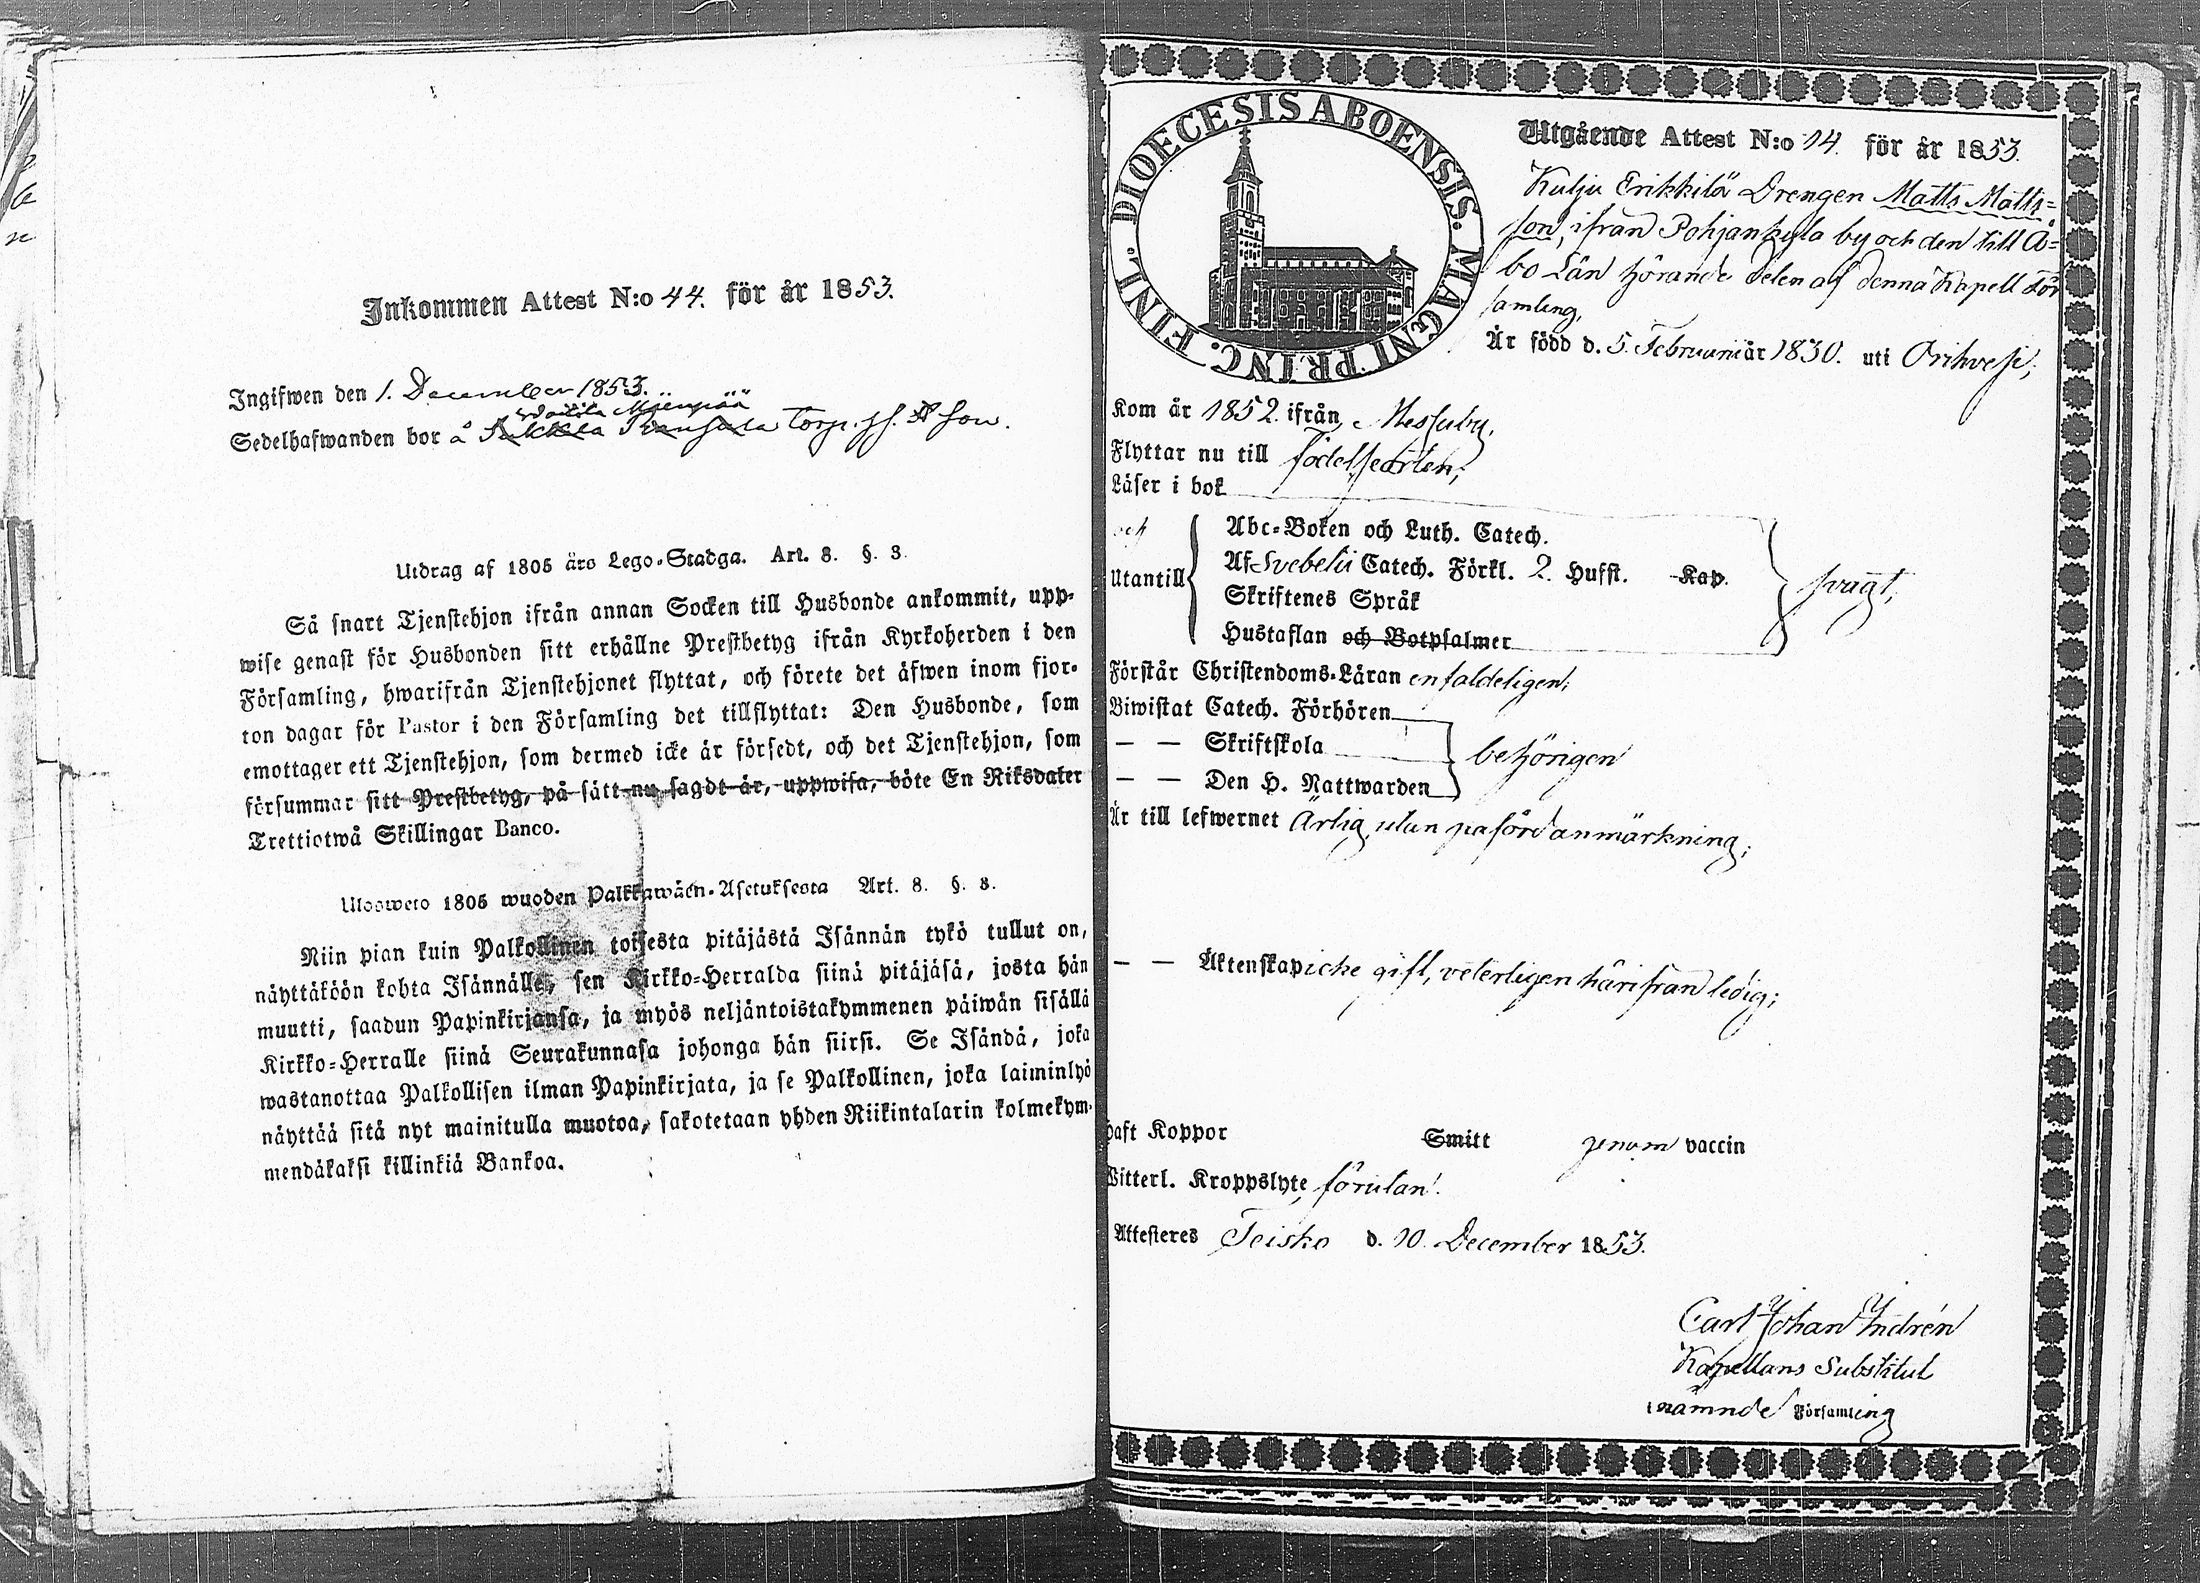 Inkommen Attest N:o 44. för år 1853.
Ingifwen den 1. December 1853.
Mäenpää
Sedelhafwanden bor å Torp. son.
Utdrag af 1805 års Lego-Stadga. Art. 8. §. 3.
Så snart Tjenstehjon ifrån annan Socken till Husbonde ankommit, upp-
wise genast för Husbonden sitt erhållne Prestbetyg ifrån Kyrkoherden i den
Församling, hwarifrån Tjenstehjonet flyttat, och förete det äfwen inom fjor-
ton dagar för Pastor i den Församling det tillflyttat: Den Husbonde, som
emottager ett Tjenstehjon, som dermed icke är försedt, och det Tjenstehjon, som
försummar sitt Prestbetyg, på sätt nu sagdt är, uppwisa, böte En Riksdaler
Trettiotwå Skillingar Banco.
Ulosweto 1805 wuoden Palkkawäen-Asetuksesta Art. 8. §. 3.
Niin pian kuin Palkollinen toisesta pitäjästä Isännän tykö tullut on,
näyttäköön kohta Isännälle, sen Kirkko-Herralda siinä pitäjäsä, josta hän
muutti, saadun Papinkirjansa, ja myös neljäntoistakymmenen päiwän sisällä
Kirkko-Herralle siinä Seurakunnasa johonga hän siirsi. Se Isändä, joka
wastanottaa Palkollisen ilman Papinkirjata, ja se Palkollinen, joka laiminlyö
näyttää sitä nyt mainitulla muotoa, sakotetaan yhden Riikintalarin kolmekym-
mendäkaksi killinkiä Bankoa.
DIOECESIS ABOENSIS. MAGNI PRINC. FINL.
Utgående Attest N:o 14. för år 1853.
Kulju Erikkilä Drengen Matts Matts-
son, ifrån Pohjankyla by och den till Å-
bo Län hörande delen af denna Kapell För
samling,
Är född d. 5. Februarii år 1830. uti Orihvesi;
Kom år 1852. ifrån Messuby,
Flyttar nu till födelseorten;
Läser i bok
och Abc-Boken och Luth. Catech.
Utantill Af Svebelii Catech. Förkl. 2. Hufst. Kap. svagt;
Skriftenes Språk
Hustaflan och Botpsalmer
Förstår Christendoms-Läran enfaldeligen;
Biwistat Catech. Förhören
— — Skriftskola behörigen
— — Den H. Nattwarden
Är till lefwernet Ärlig utan påförd anmärkning;
— — Äktenskap icke gift, veterligen härifrån ledig;
Haft Koppor Smitt genom vaccin
Witterl. Kroppslyte, förutan!
Attesteres Teisko d. 10. December 1853.
Carl Johan Indrén
Kapellans Substitut
i nämnde Församling